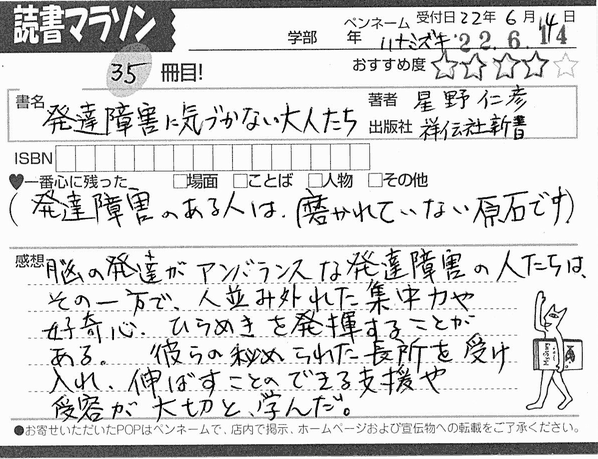 読書マラソン
学部 年
ペンネーム ハナミズキ
受付日 22年 6月 14日
'22.6.14
35 冊目!
おすすめ度 ★★★★☆
書名 発達障害に気づかない大人たち
著者 星野仁彦
出版社 祥伝社新書
ISBN
♥一番心に残った □場面 □ことば □人物 □その他
(発達障害のある人は、磨かれていない原石です)
感想 脳の発達がアンバランスな発達障害の人たちは、
その一方で、人並み外れた集中力や
好奇心、ひらめきを発揮することが
ある。 彼らの秘められた長所を受け
入れ、伸ばすことのできる支援や
受容が大切と、学んだ。
●お寄せいただいたPOPはペンネームで、店内で掲示、ホームページおよび宣伝物への転載をご了承ください。